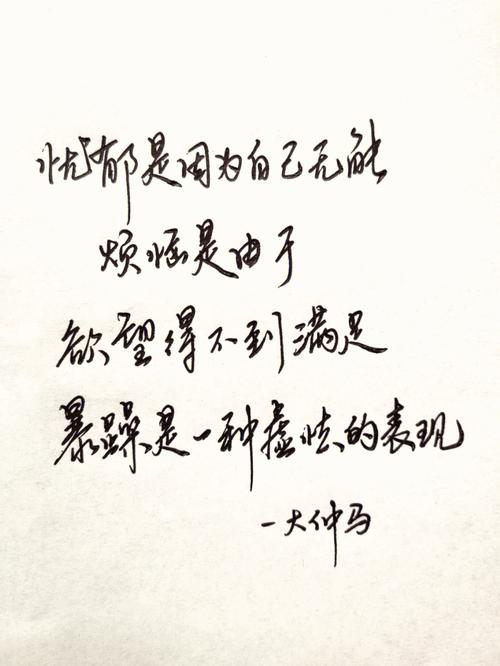 忧郁是因为自己无能
烦恼是由于
欲望得不到满足
暴躁是一种虚怯的表现
一大仲马